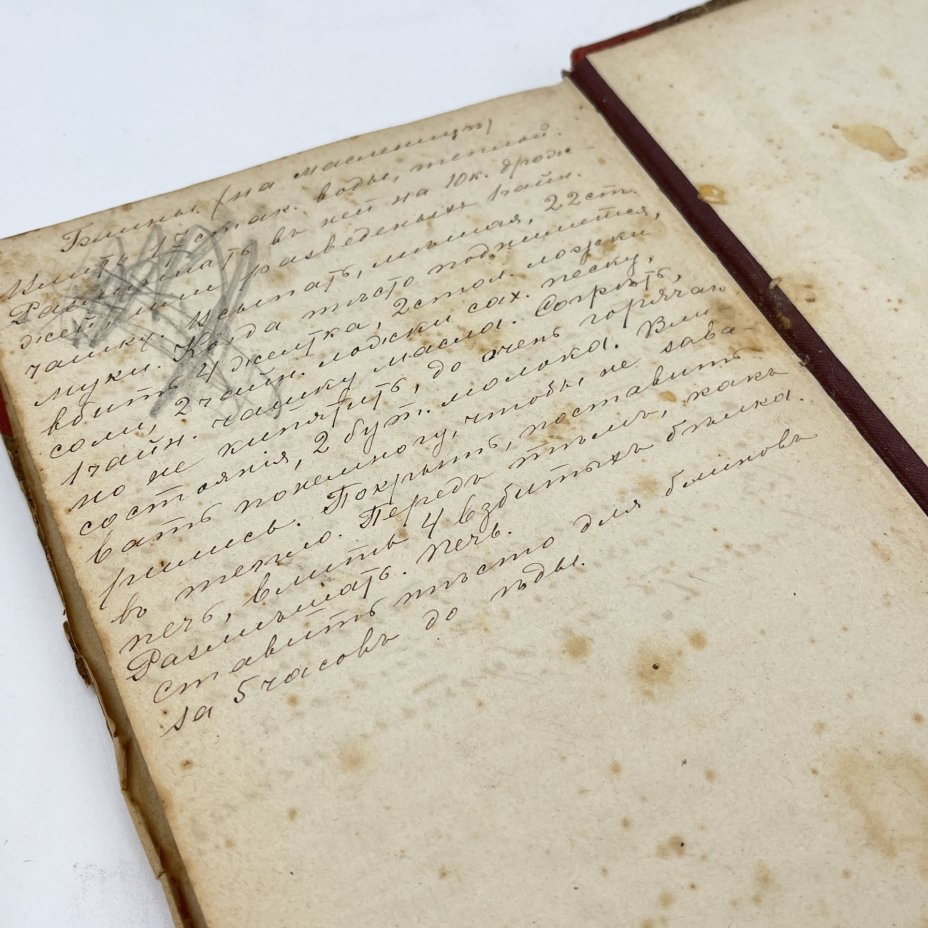 Блины (на масленицу)
Влить 17 стак. воды, теплой.
Размѣшать въ ней на 10к. дрож-
жей, или разведеныхъ 1 чайн.
чашку. Всыпать, мѣшая, 22 ст.
муки. Когда тѣсто поднимется,
вбить 4 желтка, 2 стол. ложки
соли, 2 чайн. ложки сах. песку,
1 чайн. чашку масла. Согрѣть,
но не кипятить, до очень горячаго
состоянія, 2 бут. молока. Вли-
вать понемногу, чтобы не зава-
рились. Покрыть, поставить
въ тепло. Передъ тѣмъ, какъ
печь, влить 4 взбитыхъ бѣлка.
Размѣшать. Печь.
ставить тѣсто для блиновъ
за 5 часовъ до ѣды.